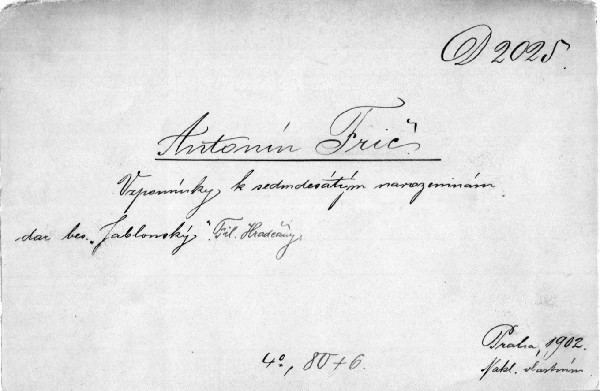 D 2025.
Antonín Frič
Vzpomínky k sedmdesátým narozeninám.
dar bes. „Jablonský" Fil. Hradčany.
Praha, 1902.
4º, 80+6. Nakl. vlastním